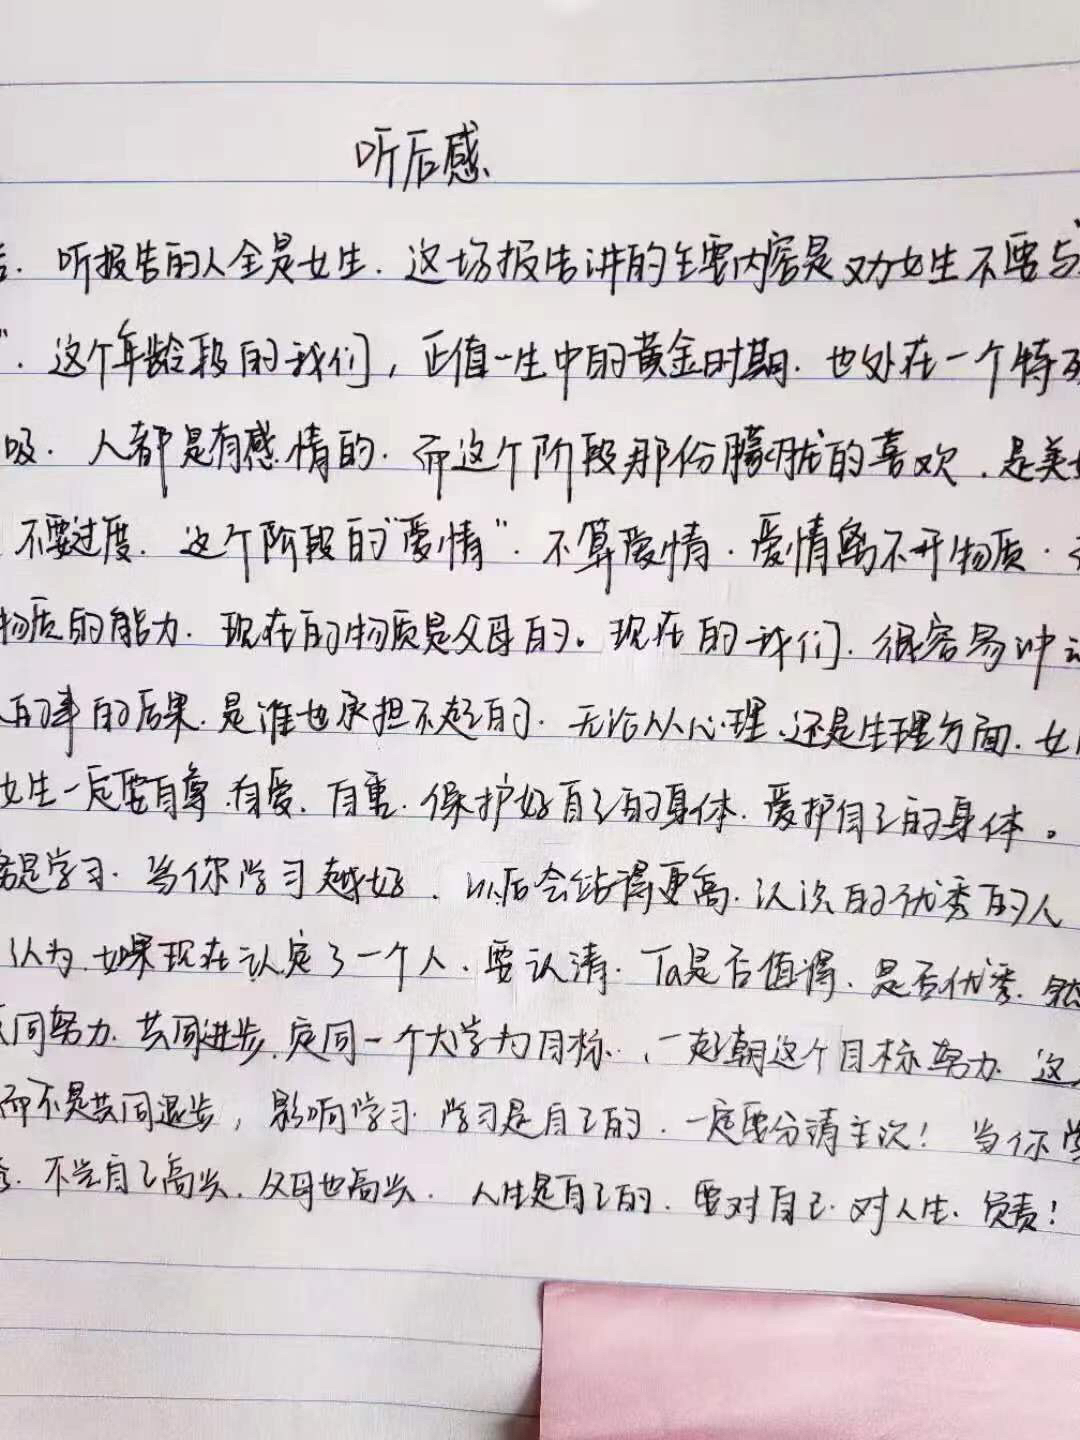 听后感
告. 听报告的人全是女生. 这场报告讲的主要内容是劝女生不要与"
". 这个年龄段的我们, 正值一生中的黄金时期. 也处在一个特
吸. 人都是有感情的. 而这个阶段那份朦胧的喜欢. 是美
不要过度. 这个阶段的"爱情". 不算爱情. 爱情离不开物质.
物质的能力. 现在的物质是父母的。现在的我们. 很容易冲
的事的后果. 是谁也承担不起的. 无论从心理、还是生理方面. 女
女生一定要自尊.自爱. 自重. 保护好自己的身体. 爱护自己的身体。
是学习. 当你学习越好. 以后会站得更高. 认识的优秀的人
认为. 如果现在认定了一个人. 要认清. Ta是否值得. 是否优秀.
同努力. 共同进步. 定同一个大学为目标. 一起朝这个目标努力. 这
而不是共同退步, 影响学习. 学习是自己的. 一定要分清主次! 当你
秀. 不光自己高兴. 父母也高兴. 人生是自己的. 要对自己. 对人生. 负责!